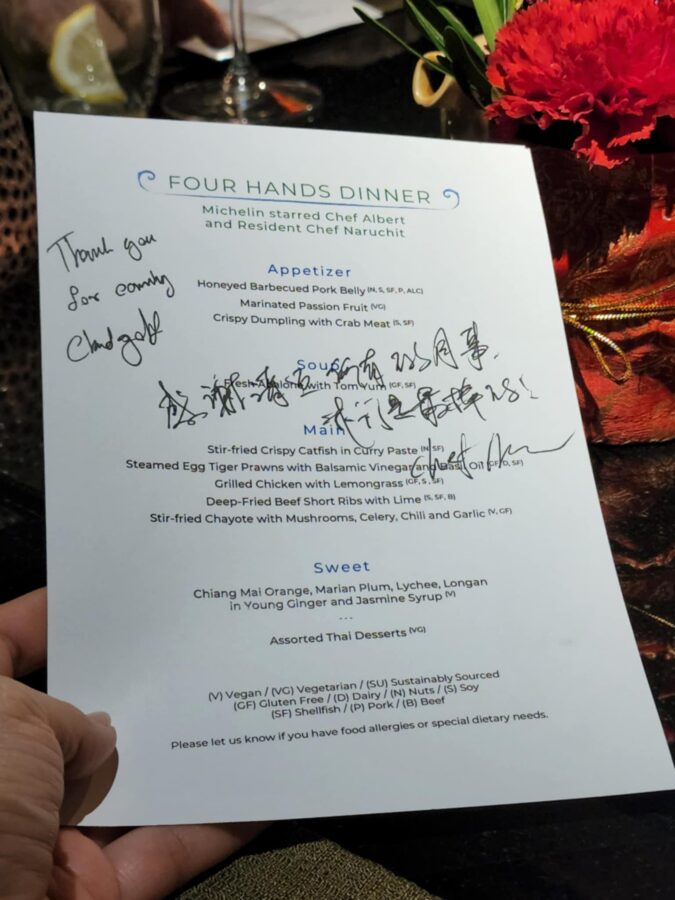 FOUR HANDS DINNER
Michelin starred Chef Albert
and Resident Chef Naruchit
Thank you
for coming
Appetizer
Honeyed Barbecued Pork Belly (N, S, SF, P, ALC)
Marinated Passion Fruit (VG)
Crispy Dumpling with Crab Meat (S, SF)
Soup
Fresh Abalone with Tom Yum (GF, SF)
感谢 所有的同事,
我们是最棒的!
Chef
Main
Stir-fried Crispy Catfish in Curry Paste (N, SF)
Steamed Egg Tiger Prawns with Balsamic Vinegar and Basil Oil (GF, D, SF)
Grilled Chicken with Lemongrass (GF, S, SF)
Deep-Fried Beef Short Ribs with Lime (S, SF, B)
Stir-fried Chayote with Mushrooms, Celery, Chili and Garlic (V, GF)
Sweet
Chiang Mai Orange, Marian Plum, Lychee, Longan
in Young Ginger and Jasmine Syrup (V)
...
Assorted Thai Desserts (VG)
(V) Vegan / (VG) Vegetarian / (SU) Sustainably Sourced
(GF) Gluten Free / (D) Dairy / (N) Nuts / (S) Soy
(SF) Shellfish / (P) Pork / (B) Beef
Please let us know if you have food allergies or special dietary needs.